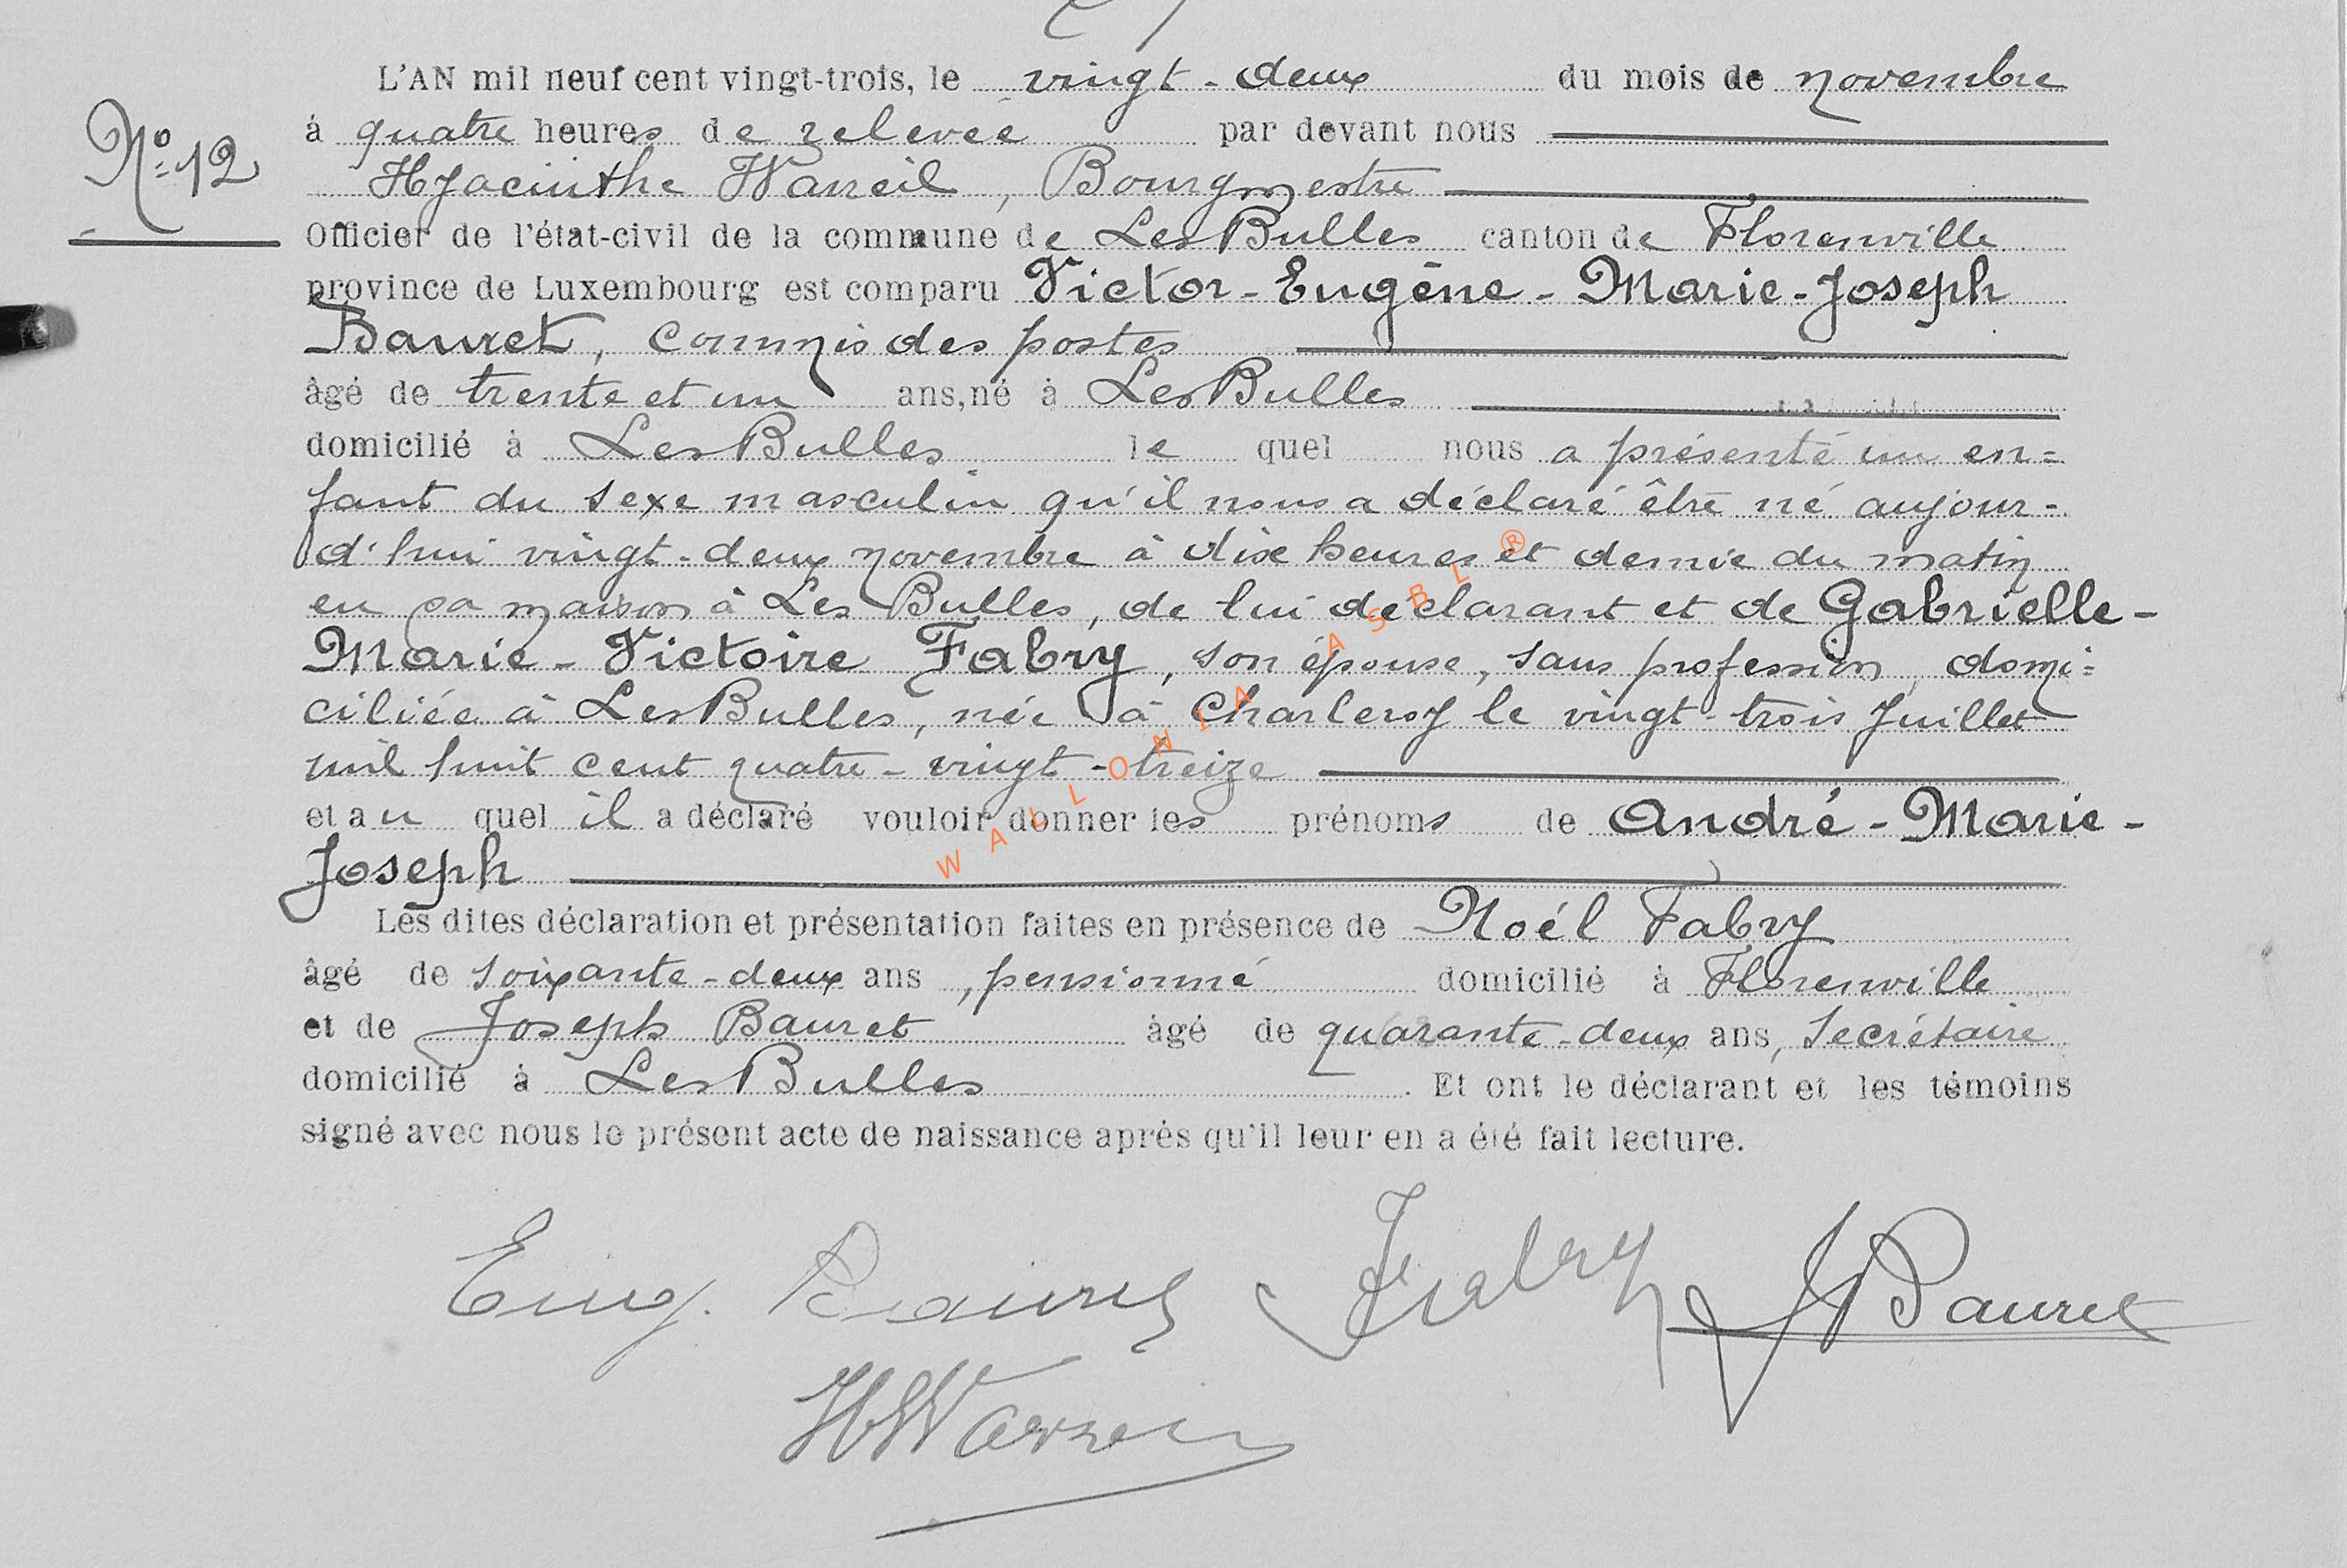 L'AN mil neuf cent vingt-trois, le vingt-deux du mois de novembre
N° 12
à quatre heures de relevée par devant nous
Hyacinthe Warreil, Bourgmestre
Officier de l'état-civil de la commune de Les Bulles canton de Florenville
province de Luxembourg est comparu Victor-Eugène-Marie-Joseph
Bauret, commis des postes
âgé de trente et un ans, né à Les Bulles
domicilié à Les Bulles le quel nous a présenté un en=
fant du sexe masculin qu'il nous a déclaré être né aujour-
d'hui vingt-deux novembre à dix heures et demie du matin
en sa maison à Les Bulles, de lui déclarant et de Gabrielle-
Marie-Victoire Fabry, son épouse, sans profession, domi=
ciliée à Les Bulles, née à Charleroy le vingt-trois Juillet
mil huit cent quatre-vingt-treize
et au quel il a déclaré vouloir donner les prénoms de André-Marie-
Joseph
Les dites déclaration et présentation faites en présence de Noél Fabry
âgé de soixante-deux ans, pensionné domicilié à Florenville
et de Joseph Bauret âgé de quarante-deux ans, Secrétaire
domicilié à Les Bulles. Et ont le déclarant et les témoins
signé avec nous le présent acte de naissance après qu'il leur en a été fait lecture.
Eug. Bauret Fabry J Bauret
H Warreil
WALLONIA ASBL ®